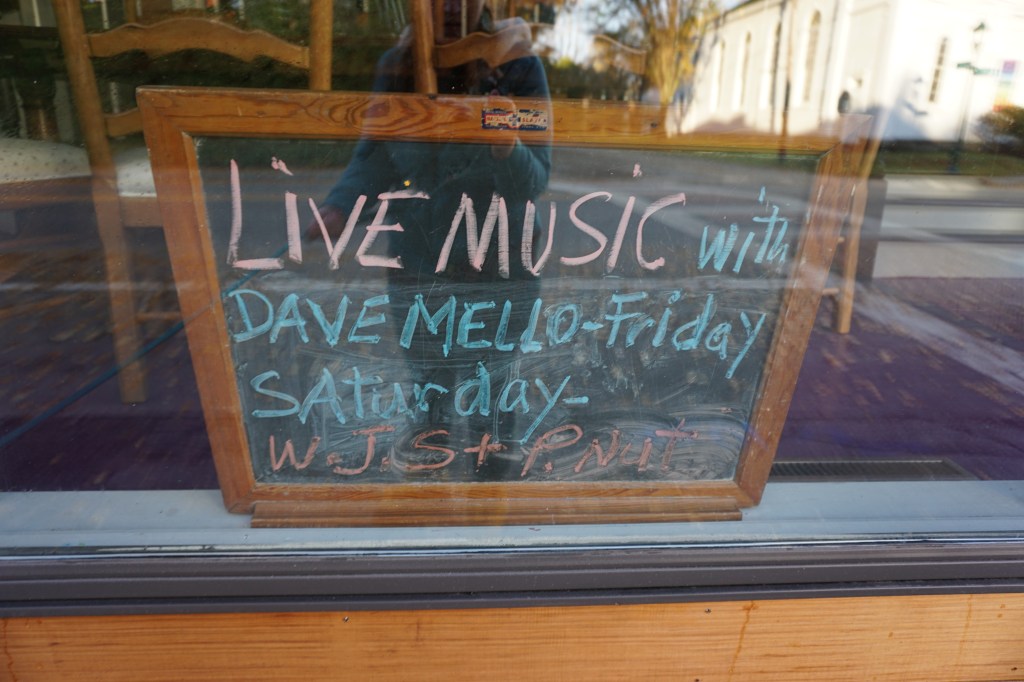 LIVE MUSIC with
DAVE MELLO-Friday
SAturday-
W.J.S + P.NUT